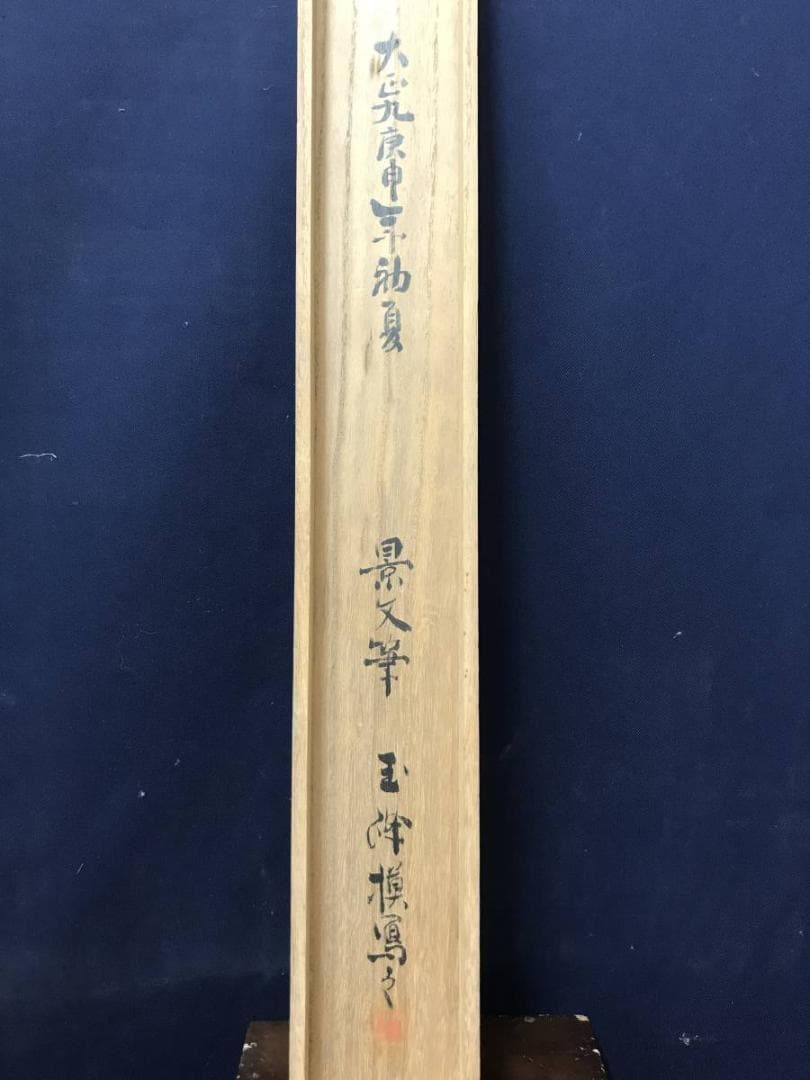 大正九庚申年初夏
景文筆 玉 模寫之